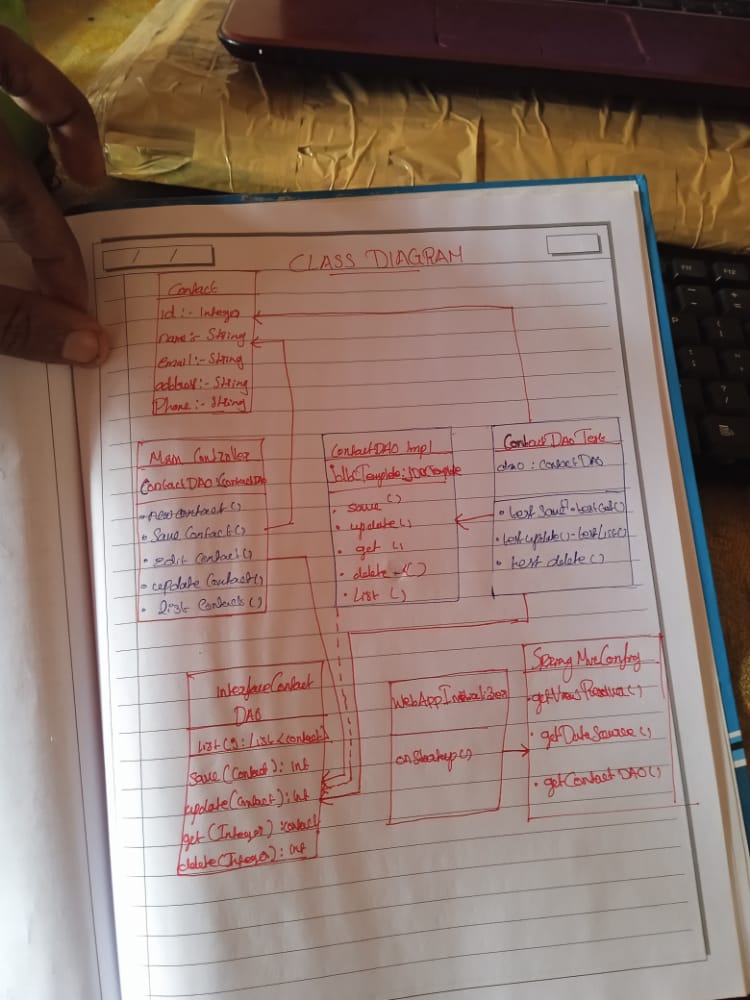 / /
CLASS DIAGRAM
Contact
id :- Integer
name :- String
email :- String
address :- String
Phone :- String
Main Controller
ContactDAO : ContactDAO
• newcontact()
• Save Contact()
• edit Contact()
• update Contact()
• List Contacts()
ContactDAO Impl
JdbcTemplate : JDBCTemplate
• save()
• update()
• get()
• delete()
• List()
ContactDAO Test
dao : ContactDAO
• test Save()
• test update() - test List()
• test delete()
Interface Contact
DAO
List() : List<Contact>
Save (Contact) : int
update (Contact) : int
get (Integer) : contact
delete (Integer) : int
WebApp Initializer
onStartup()
Spring Mvc Config
• getDataSource()
• getContactDAO()